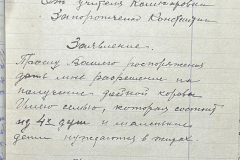 От учителя Кашкаровки
Запорожченка Константина
Заявление.
Прошу Вашего распоряжения
дать мне разрешение на
получение дойной коровы
Имею семью, которая состоит
из 4х душ и маленькие
дети нуждаются в жирах.